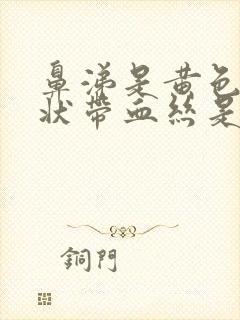 鼻涕是黄色
状带血丝是
銅門